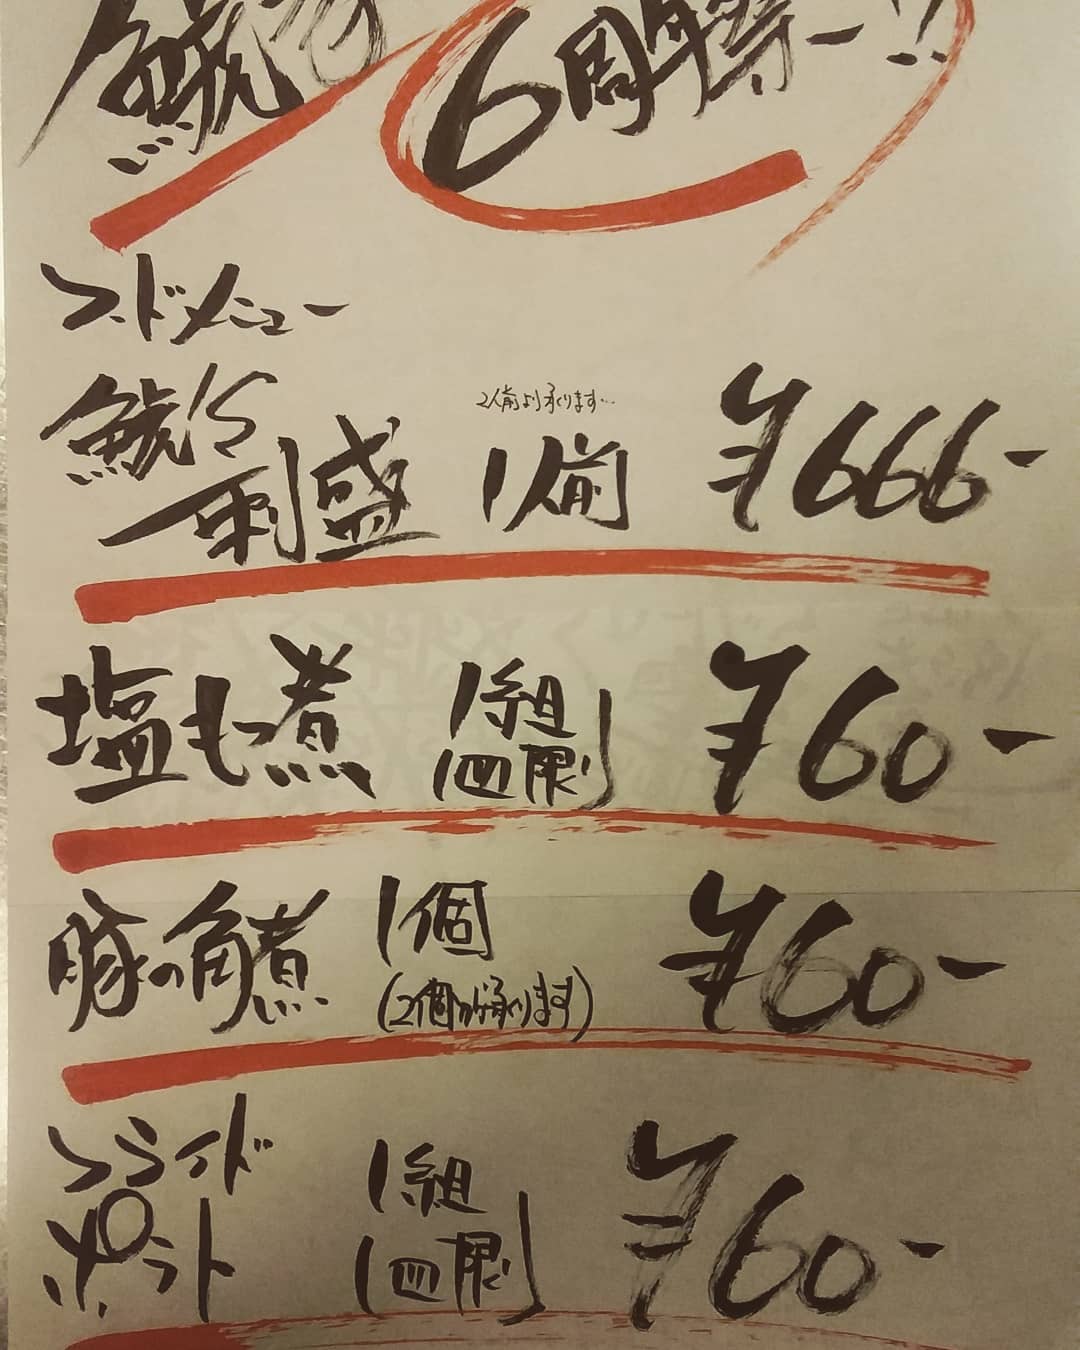 鯱's
6周年祭ー!!
フードメニュー
鯱's
刺盛 1人前 ¥666-
2人前より承ります…
塩もつ煮 1組
1皿限り ¥60-
豚の角煮 1個 ¥60-
(2個から承ります)
フライド
ポテト 1組
1皿限り ¥60-